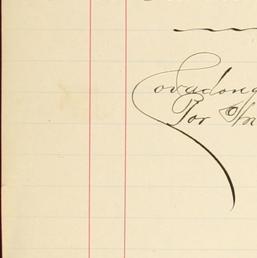 Covadong
For